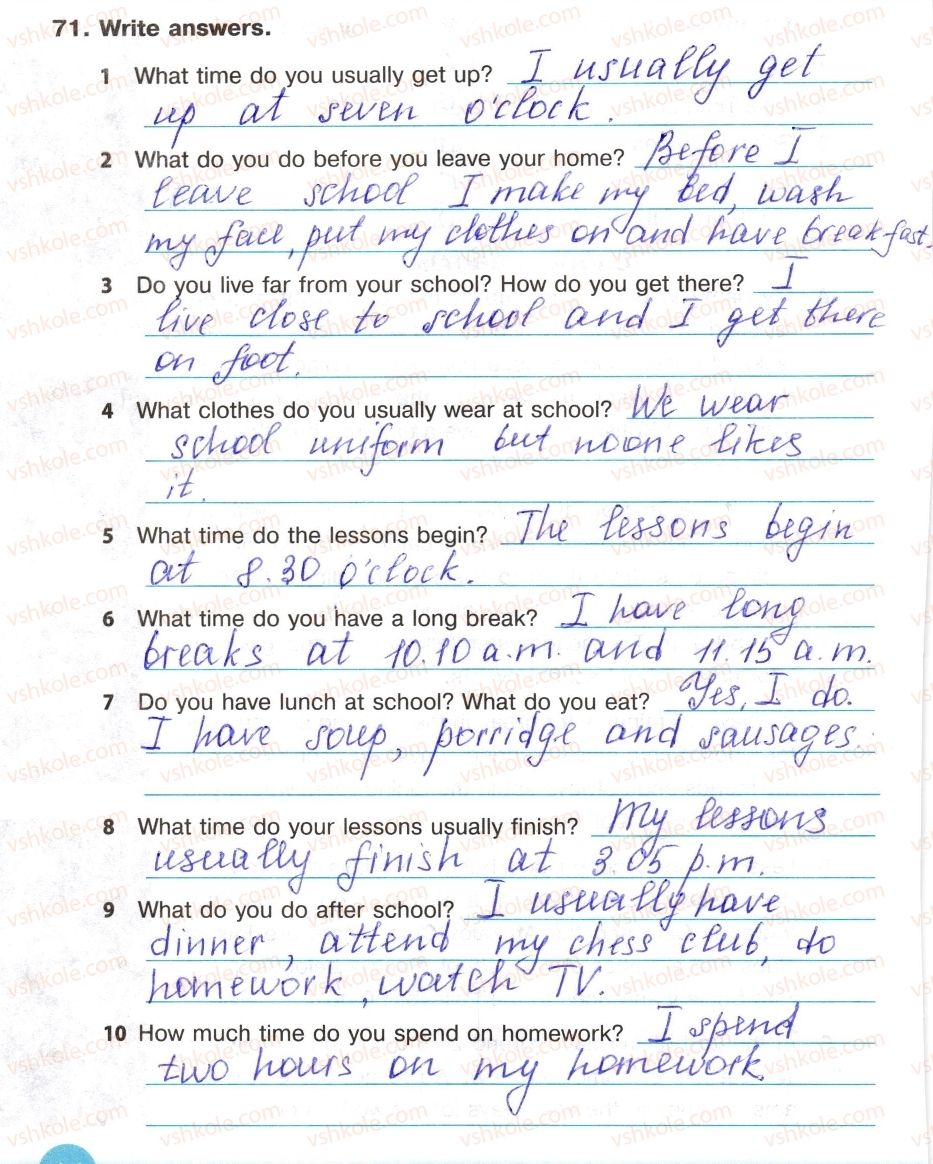 71. Write answers.
1 What time do you usually get up? I usually get
up at seven o'clock.
2 What do you do before you leave your home? Before I
leave school I make my bed, wash
my face, put my clothes on and have breakfast.
3 Do you live far from your school? How do you get there? I
live close to school and I get there
on foot.
4 What clothes do you usually wear at school? We wear
school uniform but noone likes
it.
5 What time do the lessons begin? The lessons begin
at 8.30 o'clock.
6 What time do you have a long break? I have long
breaks at 10.10 a.m. and 11.15 a.m.
7 Do you have lunch at school? What do you eat? Yes, I do.
I have soup, porridge and sausages.
8 What time do your lessons usually finish? My lessons
usually finish at 3.05 p.m.
9 What do you do after school? I usually have
dinner, attend my chess club, do
homework, watch TV.
10 How much time do you spend on homework? I spend
two hours on my homework.